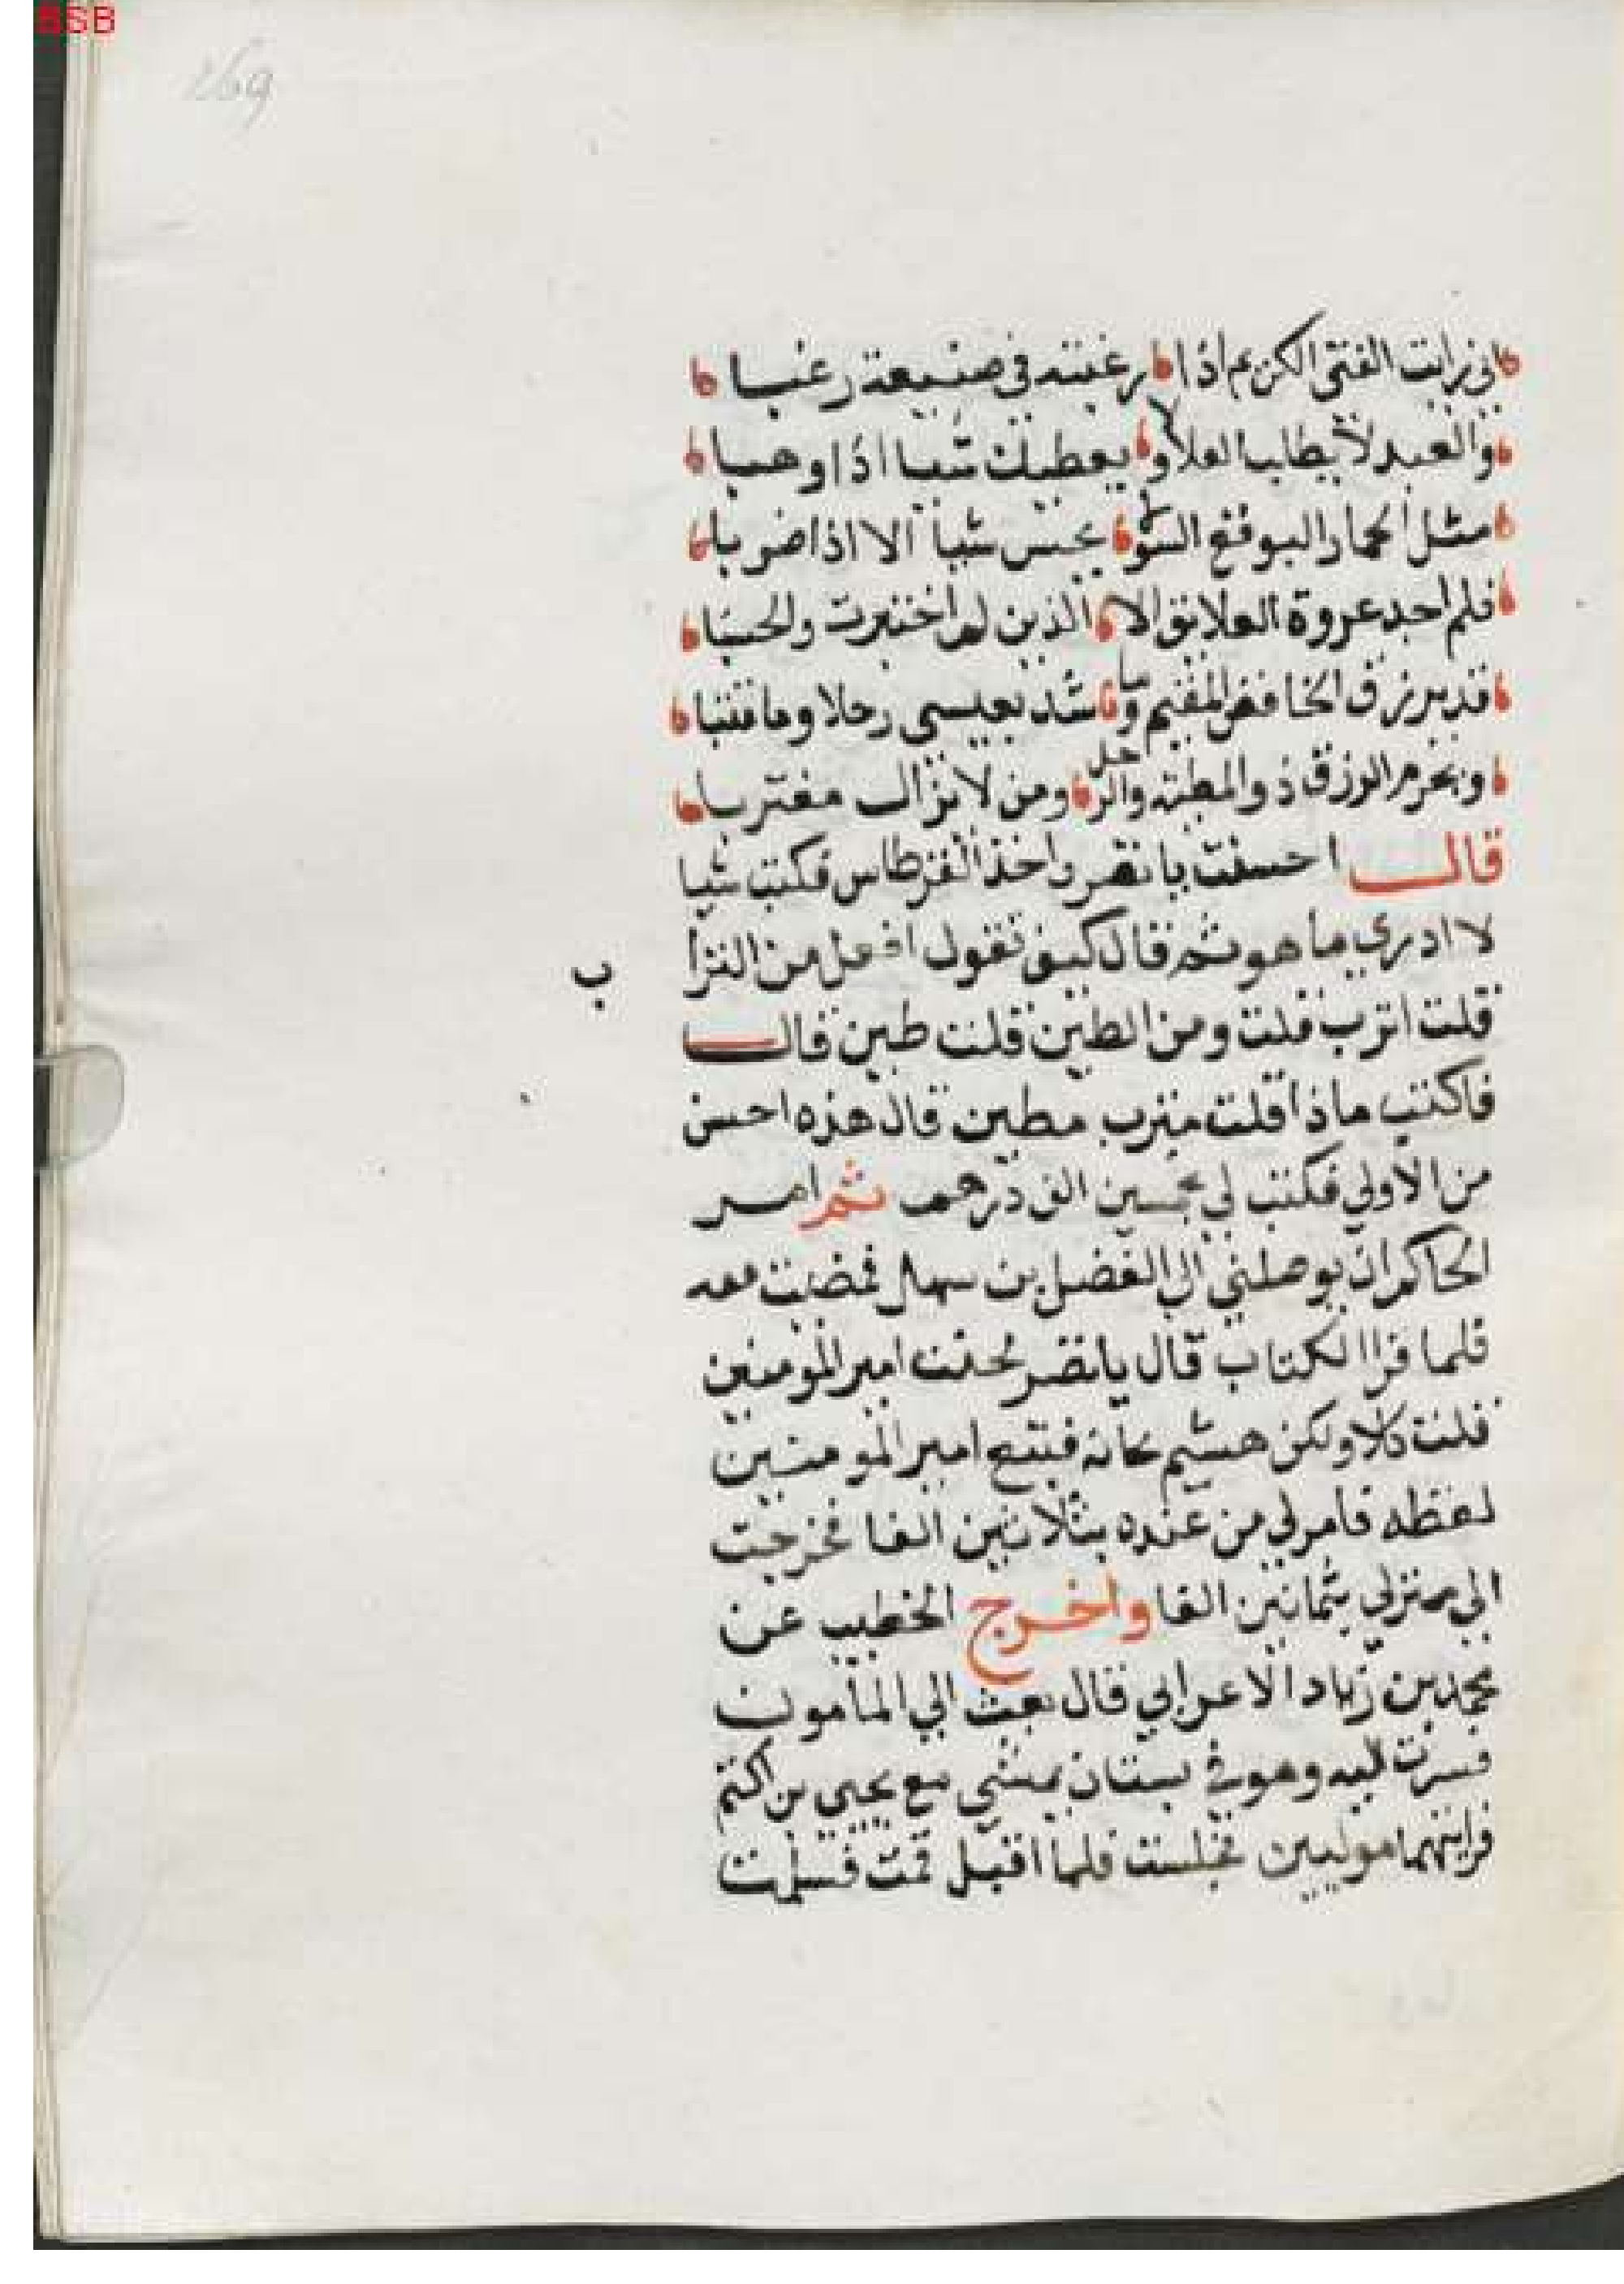 BSB
269
اني رايت الفتى الكريم اذا رغبته في صنيعة رغبا
والعبد لا يطلب العلا ولا يعطيك شيا اذا وهبا
مثل الحمار الموقع السو يحسن شيا الا اذا ضربا
فلم اجد عروة العلايق الا الذين لما اختبرت والحسبا
قد يرزق الخافض المقيم وما شد بعيسي رحلا وما قتبا
ويحرم الرزق ذو المطية والرحل ومن لا يزال مغتربا
قال احسنت يا نضر واخذ القرطاس فكتب شيا
لا ادري ما هو ثم قال كيف تقول افعل من الترا
ب
قلت اترب قلت ومن الطين قلت طين قال
فاكتب ماذا قلت مترب مطين قال هذه احسن
من الاولي فكتب لي بخمسين الف درهم ثم امر
الحاكم ان يوصلني الي الفضل بن سهل فمضيت معه
فلما قرا الكتاب قال يا نضر لحنت امير المومنين
قلت كلا ولكن هشيم لحانة فتتبع امير المومنين
لفظه فامر لي من عنده بثلاثين الفا فخرجت
الي منزلي بثمانين الفا واخرج الخطيب عن
محمد بن زياد الاعرابي قال بعث الي المامون
فسرت اليه وهو في بستان يمشي مع يحيي بن اكتم
فرايتهما موليين فجلست فلما اقبل قمت فسلمت